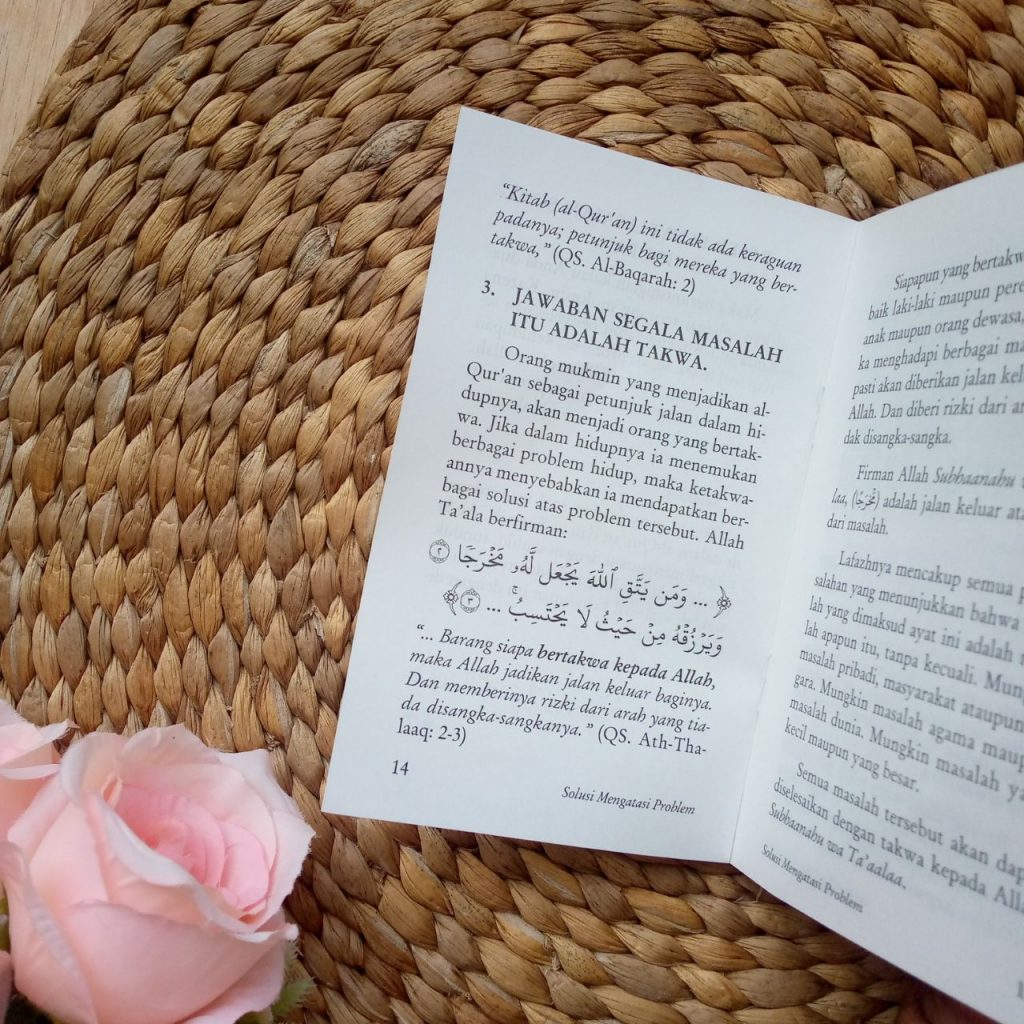 “Kitab (al-Qur'an) ini tidak ada keraguan
padanya; petunjuk bagi mereka yang ber-
takwa,” (QS. Al-Baqarah: 2)
3. JAWABAN SEGALA MASALAH
ITU ADALAH TAKWA.
Orang mukmin yang menjadikan al-
Qur'an sebagai petunjuk jalan dalam hi-
dupnya, akan menjadi orang yang bertak-
wa. Jika dalam hidupnya ia menemukan
berbagai problem hidup, maka ketakwa-
annya menyebabkan ia mendapatkan ber-
bagai solusi atas problem tersebut. Allah
Ta’ala berfirman:
﴿ ... وَمَن يَتَّقِ ٱللَّهَ يَجْعَل لَّهُۥ مَخْرَجًا ٢
وَيَرْزُقْهُ مِنْ حَيْثُ لَا يَحْتَسِبُ ۚ ... ٣ ﴾
“... Barang siapa bertakwa kepada Allah,
maka Allah jadikan jalan keluar baginya.
Dan memberinya rizki dari arah yang tia-
da disangka-sangkanya.” (QS. Ath-Tha-
laaq: 2-3)
14
Solusi Mengatasi Problem
Siapapun yang bertakw
baik laki-laki maupun pere
anak maupun orang dewasa,
ka menghadapi berbagai ma
pasti akan diberikan jalan kel
Allah. Dan diberi rizki dari ar
dak disangka-sangka.
Firman Allah Subhaanahu
laa, (مَخْرَجًا) adalah jalan keluar ata
dari masalah.
Lafazhnya mencakup semua p
salahan yang menunjukkan bahwa
lah yang dimaksud ayat ini adalah
lah apapun itu, tanpa kecuali. Mun
masalah pribadi, masyarakat ataupun
gara. Mungkin masalah agama maup
masalah dunia. Mungkin masalah ya
kecil maupun yang besar.
Semua masalah tersebut akan dap
diselesaikan dengan takwa kepada Alla
Subhaanahu wa Ta’aalaa.
Solusi Mengatasi Problem